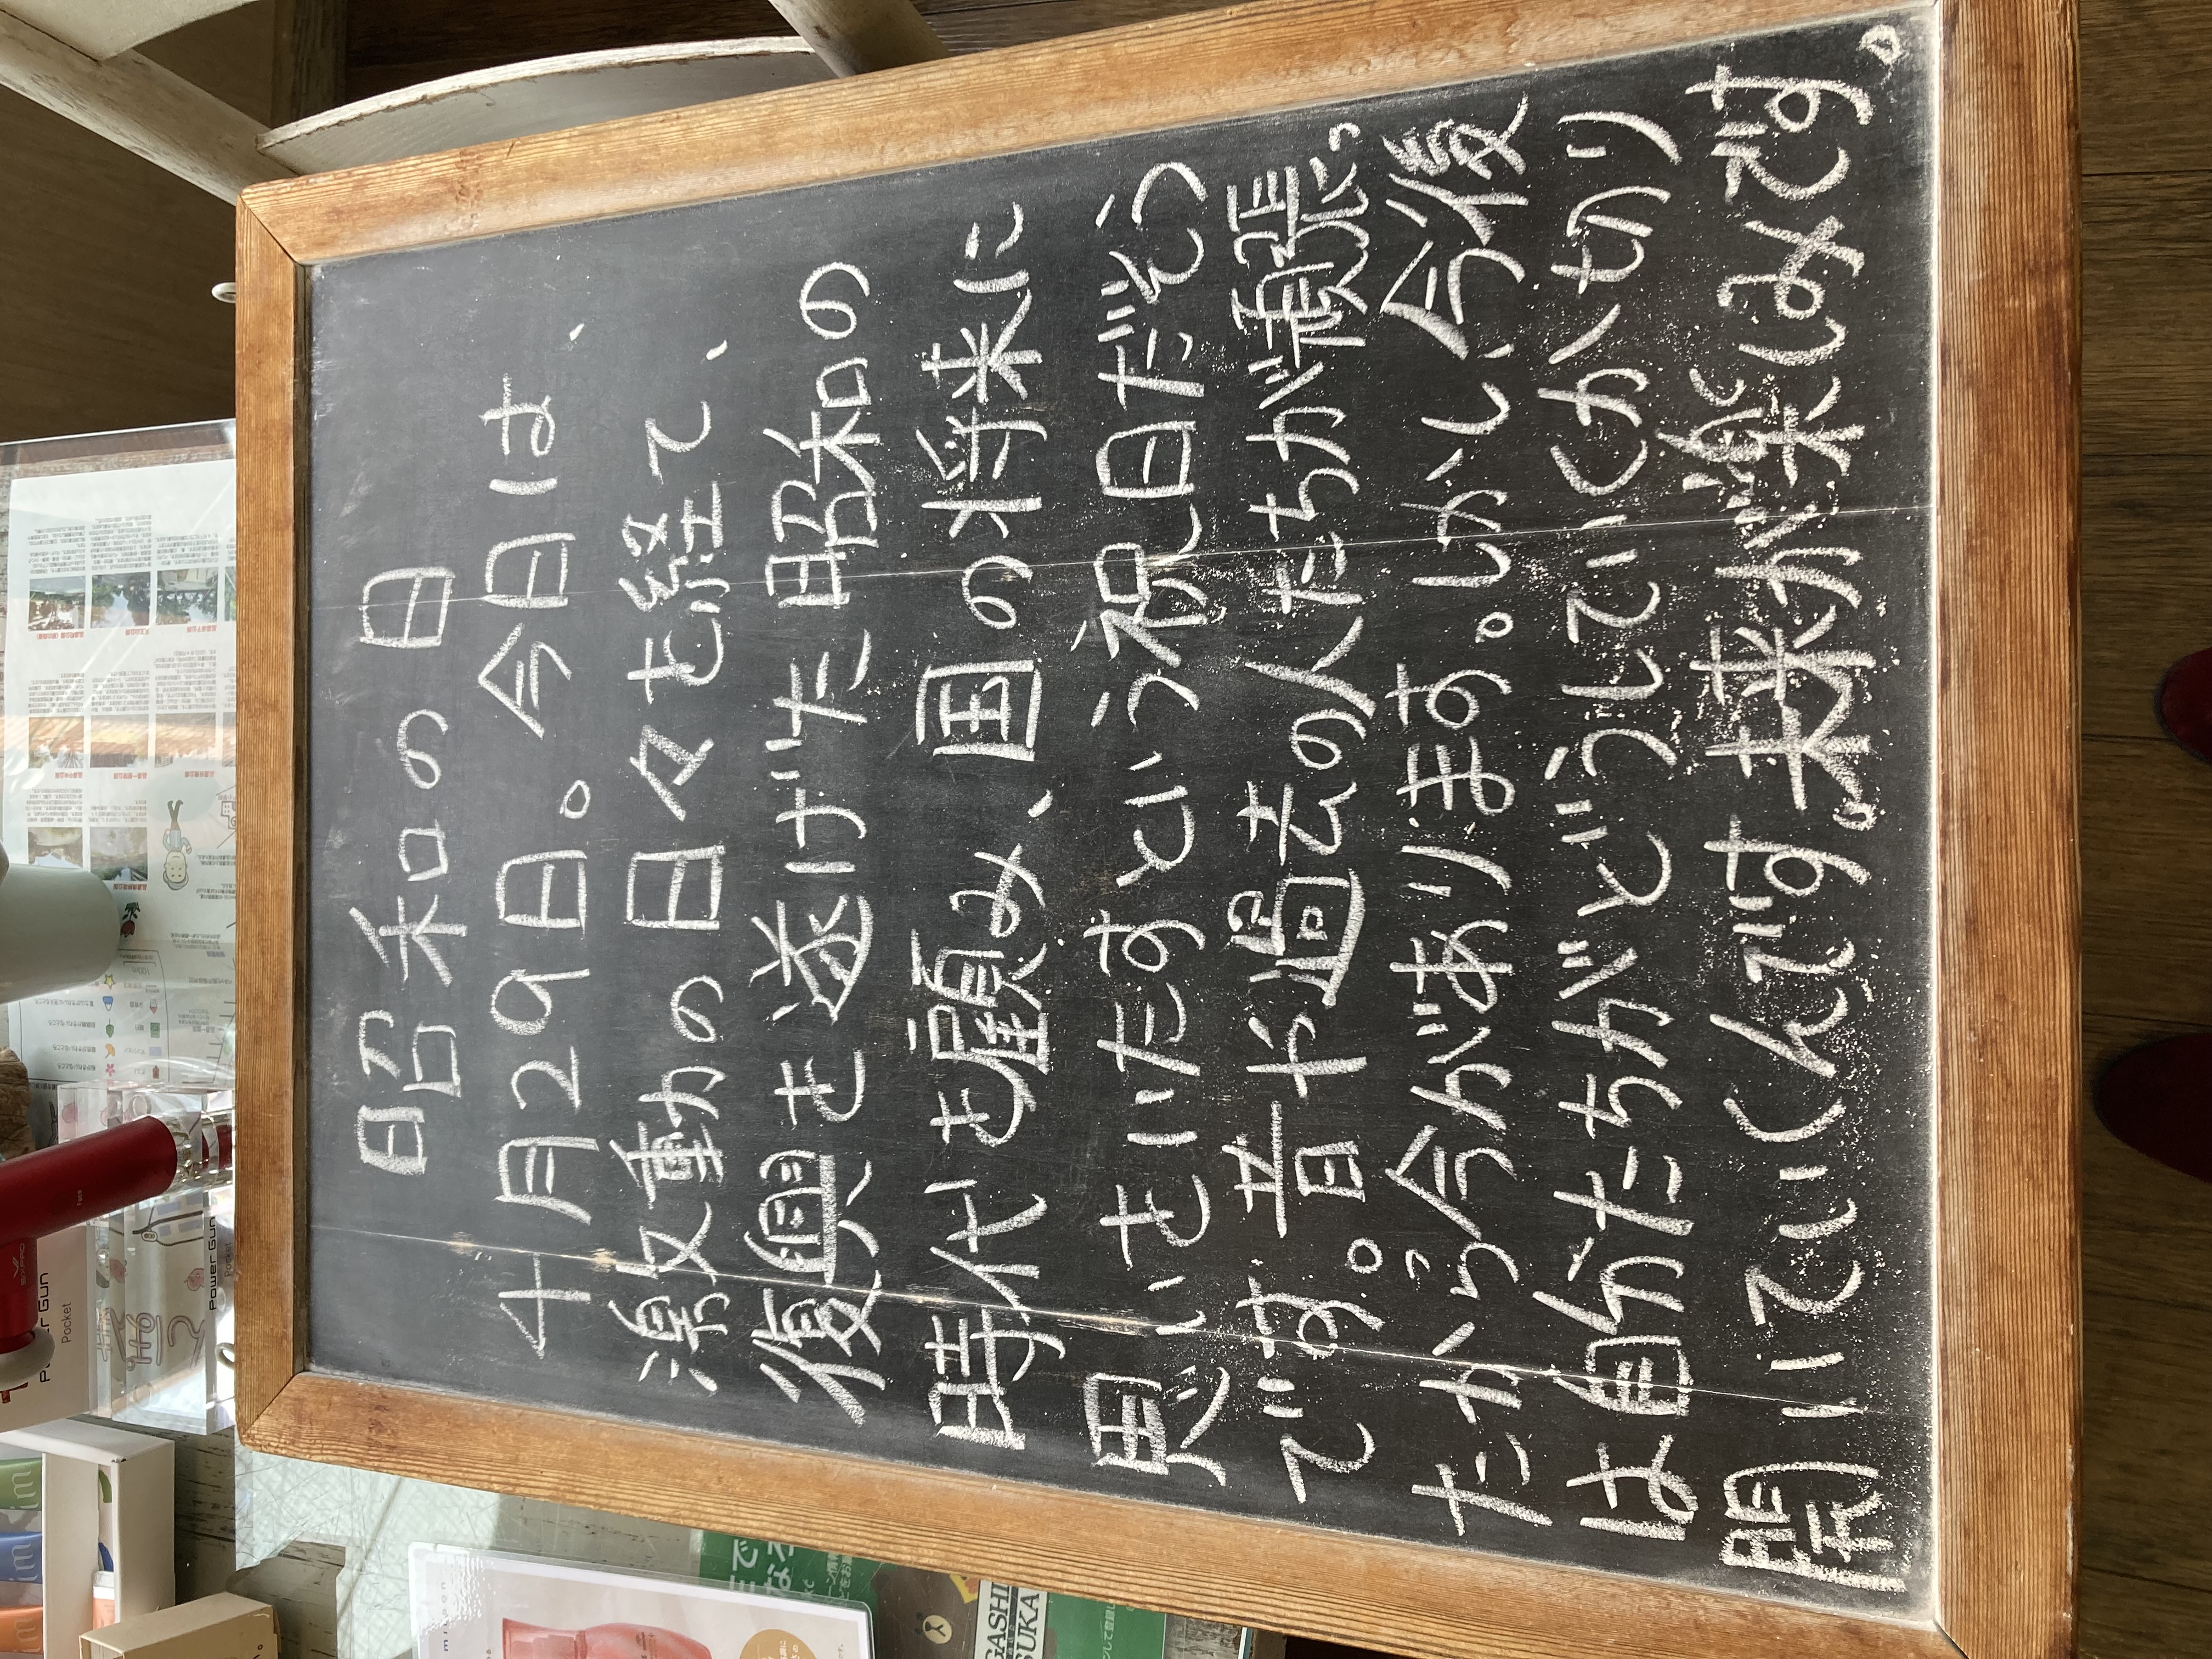 昭和の日
4月29日。今日は、
激動の日々を経て、
復興を遂げた昭和の
時代を顧み、国の将来に
思いをいたすという祝日だそう
です。昔や過去の人たちが頑張っ
たから今があります。しかし、今後
は自分たちがどうしていくか、切り
開いていくんです。未来が楽しみです。
Power Gun
Pocket
GASHI
SUKA